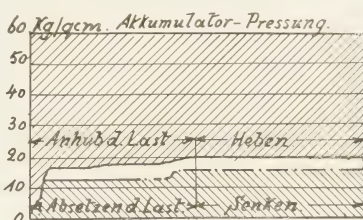 60 Kg/qcm. Akkumulator-Pressung.
50
40
30
Anhub d. Last Heben
20
10
Absetzen d. Last Senken
0